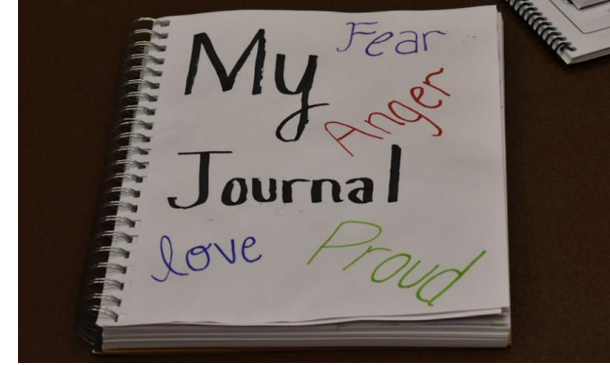 My
Fear
Anger
Journal
love
Proud